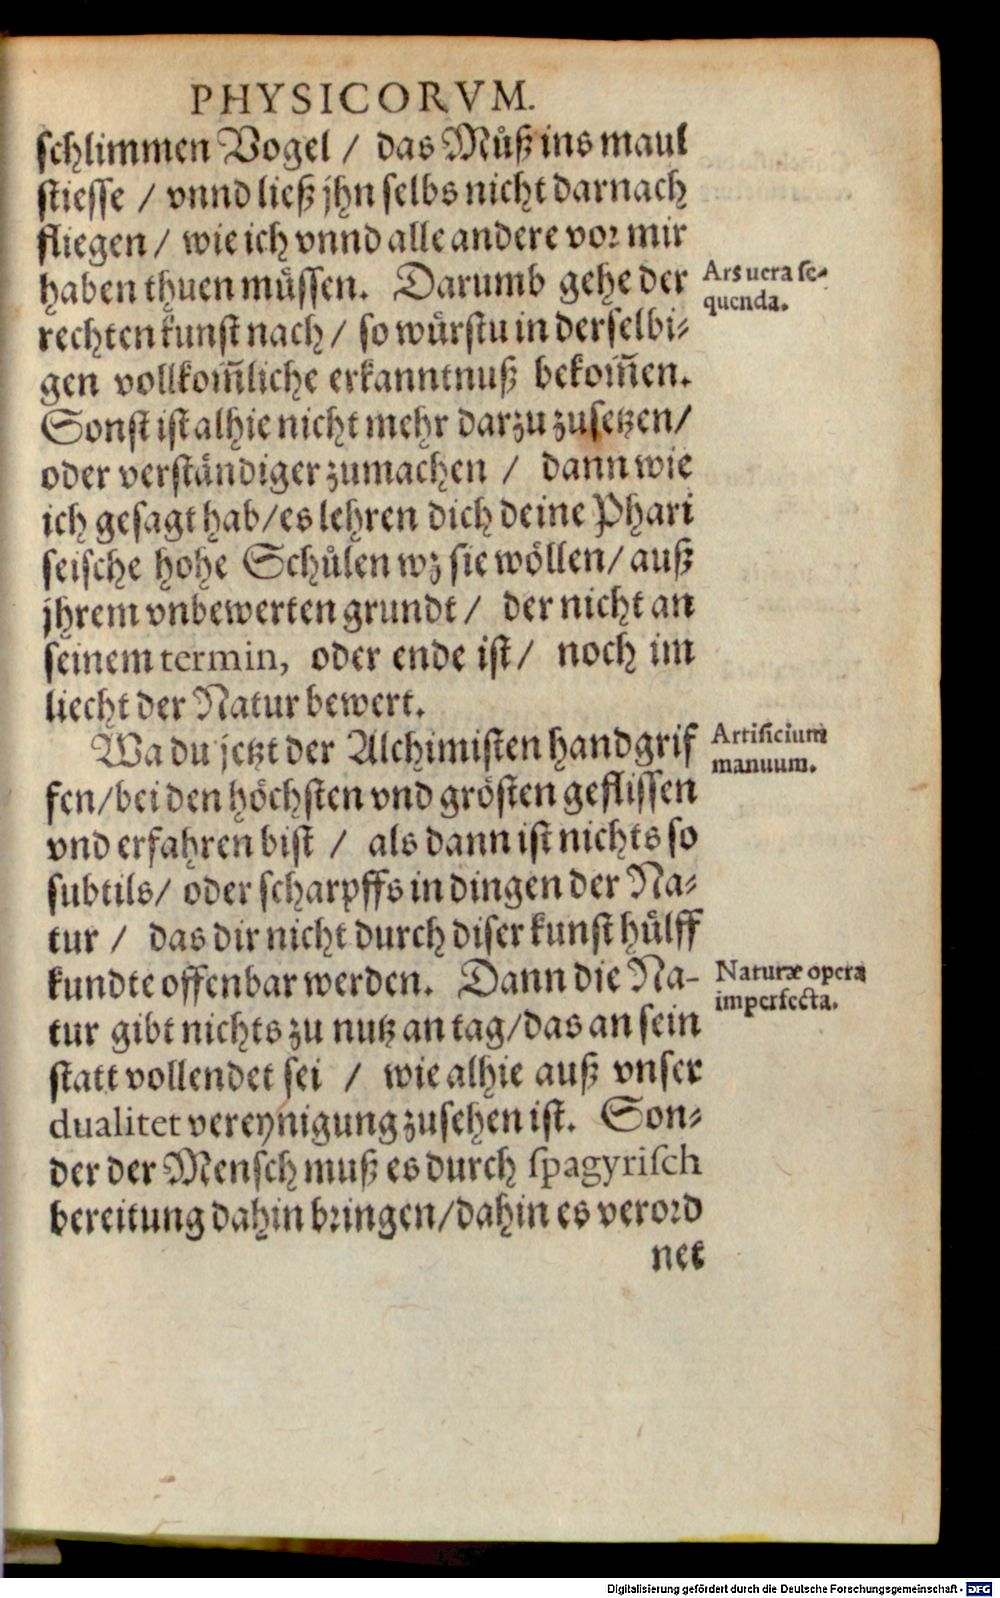 PHYSICORVM.
schlimmen Vogel / das Můß ins maul
stiesse / vnnd ließ jhn selbs nicht darnach
fliegen / wie ich vnnd alle andere vor mir
haben thuen müssen. Darumb gehe der
Ars uera se-
quenda.
rechten kunst nach / so würstu in derselbi-
gen vollkom̃liche erkanntnuß bekom̃en.
Sonst ist alhie nicht mehr darzu zusetzen /
oder verständiger zumachen / dann wie
ich gesagt hab / es lehren dich deine Phari
seische hohe Schůlen wz sie wöllen / auß
jhrem vnbewerten grundt / der nicht an
seinem termin, oder ende ist / noch im
liecht der Natur bewert.
Wa du jetzt der Alchimisten handgrif
Artificium
manuum.
fen / bei den höchsten vnd grösten geflissen
vnd erfahren bist / als dann ist nichts so
subtils / oder scharpffs in dingen der Na-
tur / das dir nicht durch diser kunst hůlff
kundte offenbar werden. Dann die Na-
Naturæ opera
imperfecta.
tur gibt nichts zu nutz an tag / das an sein
statt vollendet sei / wie alhie auß vnser
dualitet vereynigung zusehen ist. Son-
der der Mensch muß es durch spagyrisch
bereitung dahin bringen / dahin es verord
net
Digitalisierung gefördert durch die Deutsche Forschungsgemeinschaft - DFG